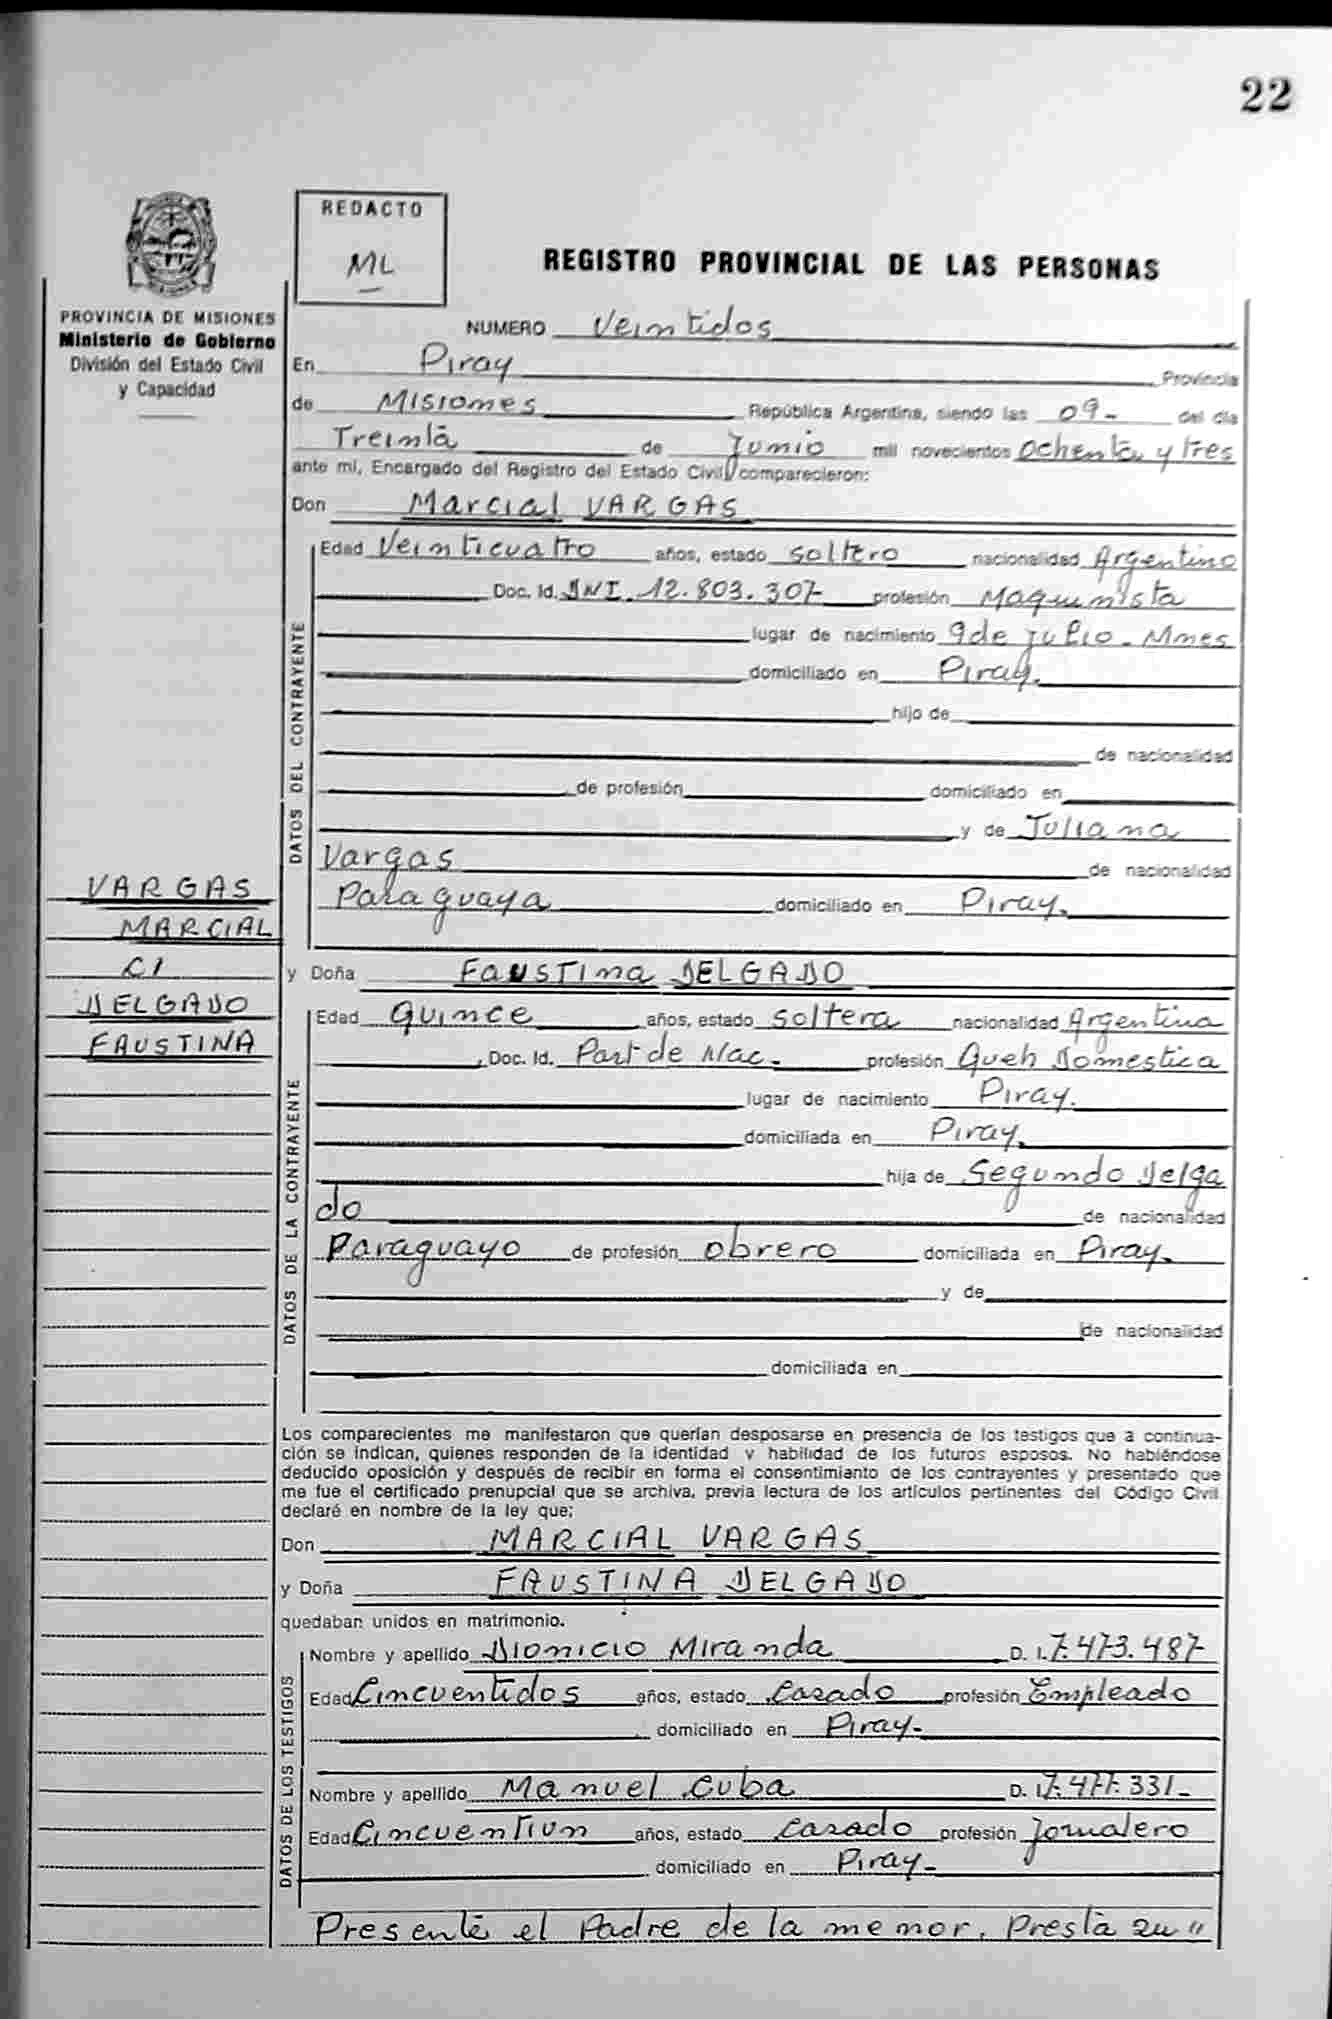 22
REDACTO
ML
REGISTRO PROVINCIAL DE LAS PERSONAS
PROVINCIA DE MISIONES
Ministerio de Gobierno
División del Estado Civil
y Capacidad
NUMERO Veintidos
En Piray Provincia
de Misiones República Argentina, siendo las 09- del día
Treinta de Junio mil novecientos ochenta y tres
ante mí, Encargado del Registro del Estado Civil comparecieron:
Don Marcial VARGAS
DATOS DEL CONTRAYENTE
Edad Veinticuatro años, estado soltero nacionalidad Argentino
Doc. Id. DNI. 12.803.307- profesión Maquinista
lugar de nacimiento 9 de Julio - Mnes
domiciliado en Piray.
hijo de
de nacionalidad
de profesión domiciliado en
y de Juliana
Vargas de nacionalidad
Paraguaya domiciliado en Piray.
VARGAS
MARCIAL
C/
DELGADO
FAUSTINA
y Doña FAUSTINA DELGADO
DATOS DE LA CONTRAYENTE
Edad Quince años, estado soltera nacionalidad Argentina
Doc. Id. Part de Nac. profesión Queh Domestica
lugar de nacimiento Piray.
domiciliada en Piray.
hija de Segundo Delga
do de nacionalidad
Paraguayo de profesión obrero domiciliada en Piray.
y de
de nacionalidad
domiciliada en
Los comparecientes me manifestaron que querían desposarse en presencia de los testigos que a continua-
ción se indican, quienes responden de la identidad y habilidad de los futuros esposos. No habiéndose
deducido oposición y después de recibir en forma el consentimiento de los contrayentes y presentado que
me fue el certificado prenupcial que se archiva, previa lectura de los artículos pertinentes del Código Civil
declaré en nombre de la ley que;
Don MARCIAL VARGAS
y Doña FAUSTINA DELGADO
quedaban unidos en matrimonio.
DATOS DE LOS TESTIGOS
Nombre y apellido Dionicio Miranda D. I. 7.473.487-
Edad Cincuentidos años, estado Casado profesión Empleado
domiciliado en Piray-
Nombre y apellido Manuel Cuba D. I. 7.477.331-
Edad Cincuentiun años, estado Casado profesión Jornalero
domiciliado en Piray-
Presente el Padre de la menor. Presta su "